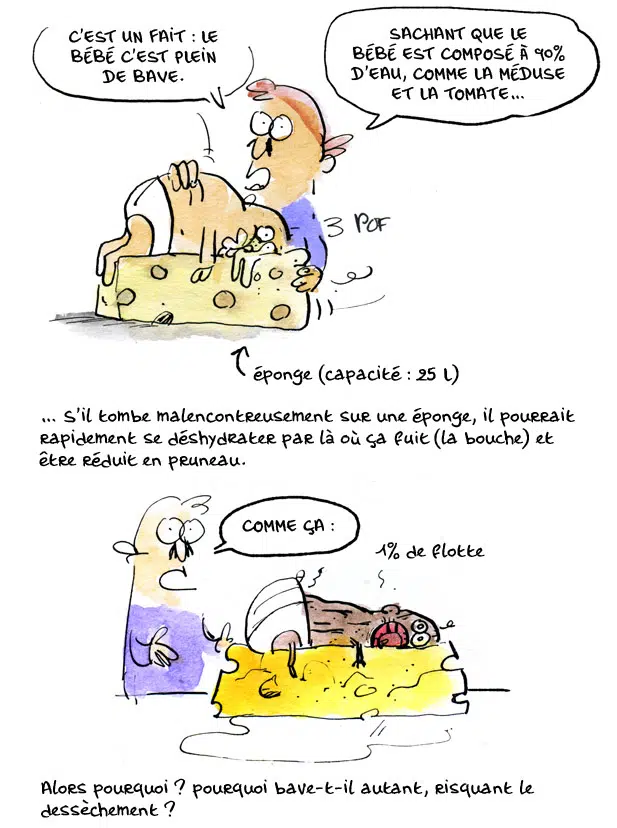 C'EST UN FAIT : LE
BÉBÉ C'EST PLEIN
DE BAVE.
SACHANT QUE LE
BÉBÉ EST COMPOSÉ À 90%
D'EAU, COMME LA MÉDUSE
ET LA TOMATE...
POF
éponge (capacité : 25 L)
... S'il tombe malencontreusement sur une éponge, il pourrait
rapidement se déshydrater par là où ça fuit (la bouche) et
être réduit en pruneau.
COMME ÇA :
1% de flotte
Alors pourquoi ? pourquoi bave-t-il autant, risquant le
dessèchement ?